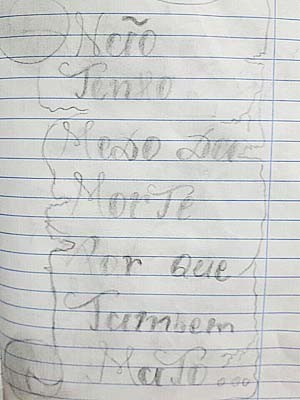 Não
Tenho
Medo Da
Morte
Por que
Tambem
Mato